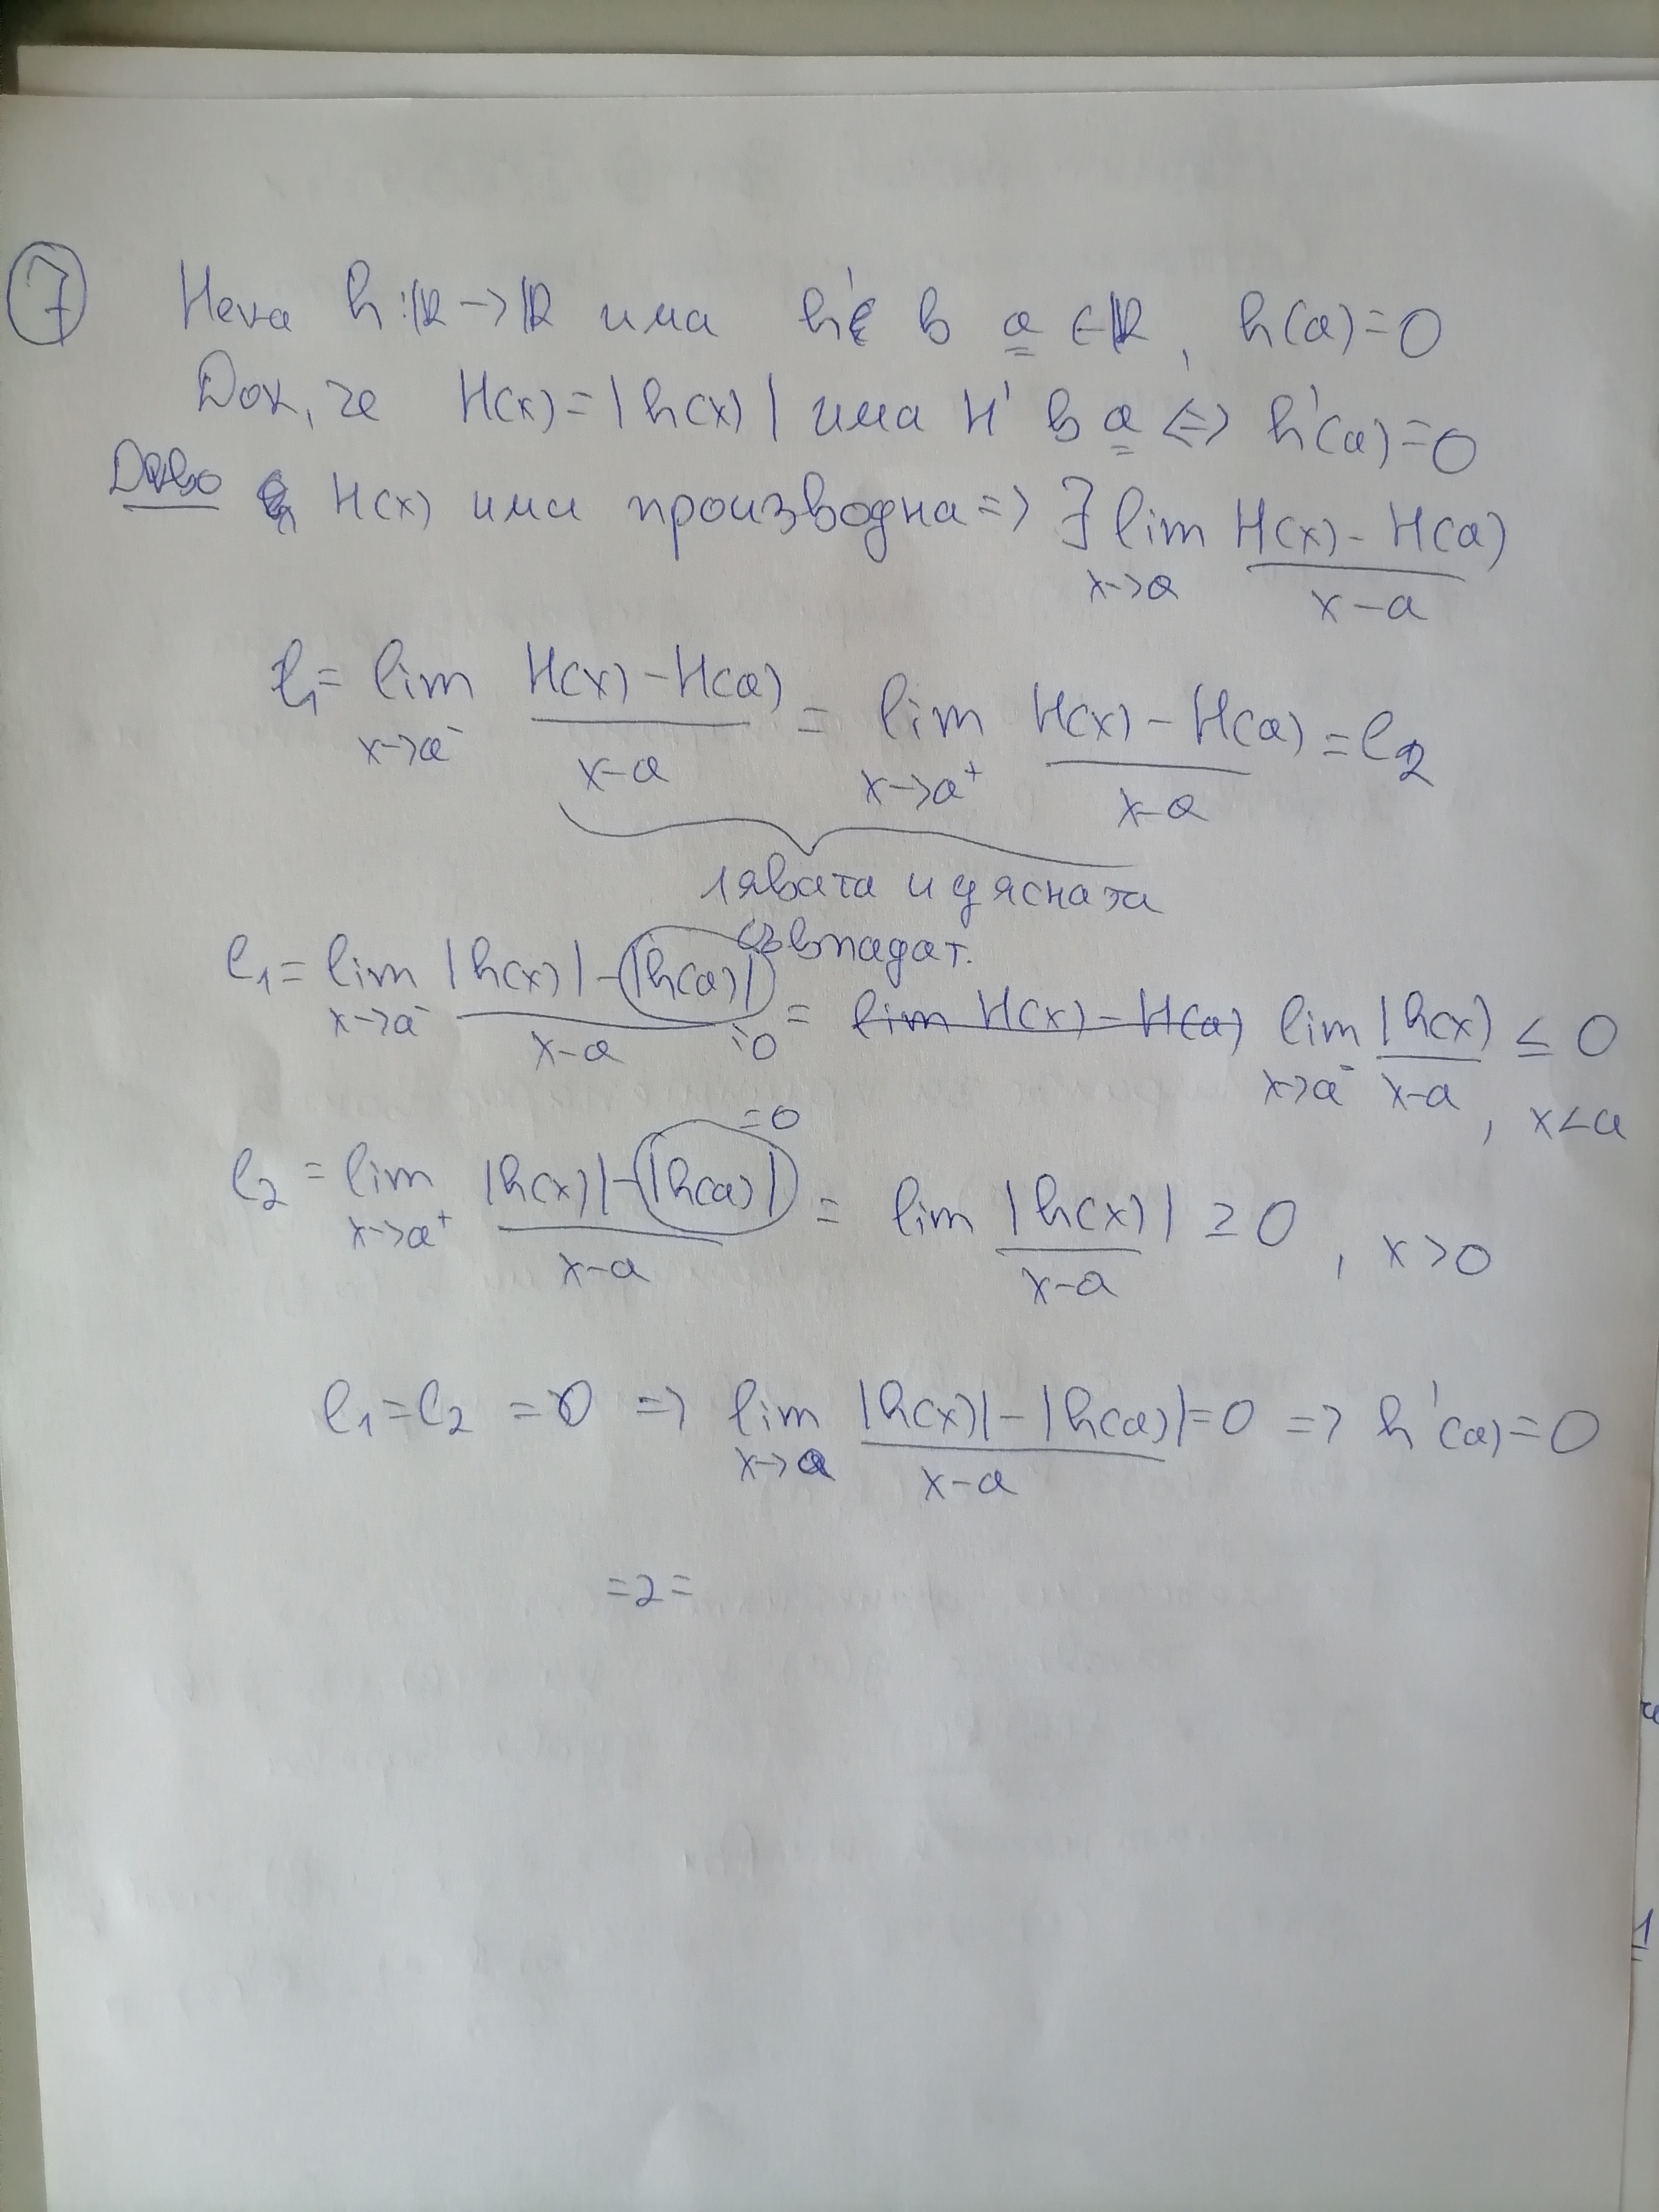 7 Нека h: ℝ → ℝ има h' в a ∈ ℝ, h(a) = 0
Док, че H(x) = |h(x)| има H' в a <=> h'(a) = 0
Д-во H(x) има производна => ∃ lim x->a (H(x) - H(a))/(x-a)
l1 = lim x->a⁻ (H(x) - H(a))/(x-a) = lim x->a⁺ (H(x) - H(a))/(x-a) = l2
лявата и дясната
съвпадат.
l1 = lim x->a⁻ (|h(x)| - |h(a)|)/(x-a) =0 = lim H(x) - H(a) lim x->a⁻ |h(x)/(x-a) ≤ 0, x<a
l2 = lim x->a⁺ (|h(x)| - |h(a)|)/(x-a) =0 = lim |h(x)|/(x-a) ≥ 0, x>0
l1 = l2 = 0 => lim x->a (|h(x)| - |h(a)|)/(x-a) = 0 => h'(a) = 0
=2=